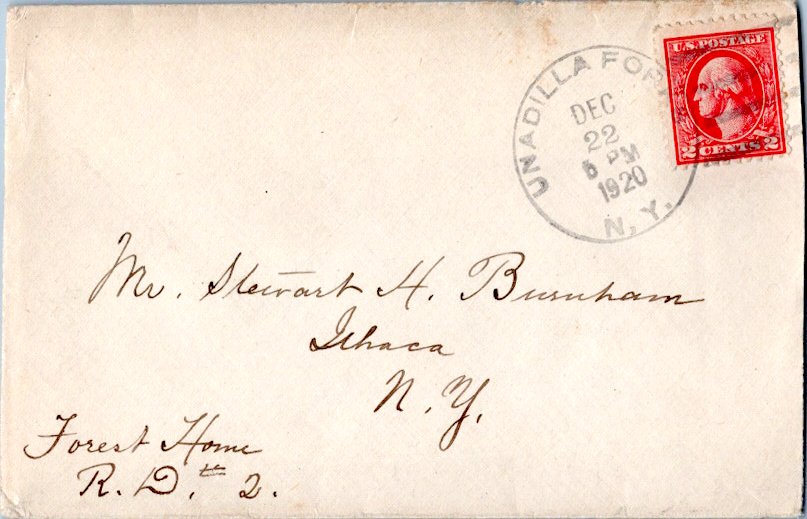 U.S. POSTAGE
2 CENTS 2
UNADILLA
DEC
22
5 PM
1920
N.Y.
Mr. Stewart H. Burnham
Ithaca
N.Y.
Forest Home
R.D. # 2.